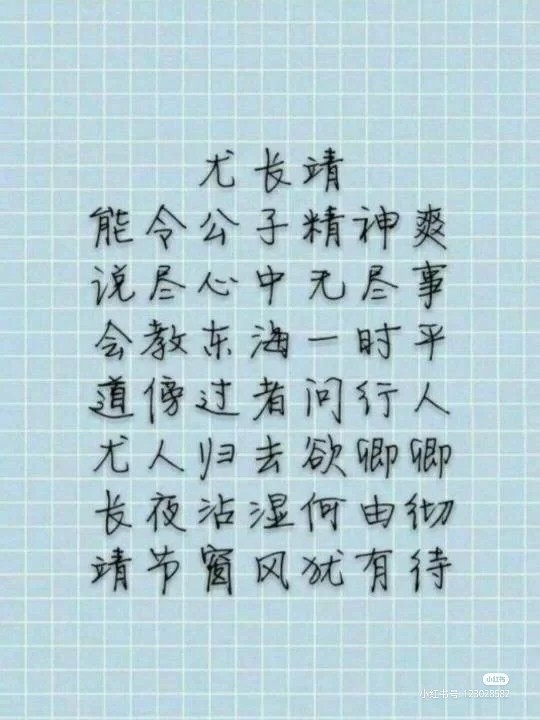 尤长靖
能令公子精神爽
说尽心中无尽事
会教东海一时平
道傍过者问行人
尤人归去欲卿卿
长夜沾湿何由彻
靖节窗风犹有待
小红书
小红书号:123028582